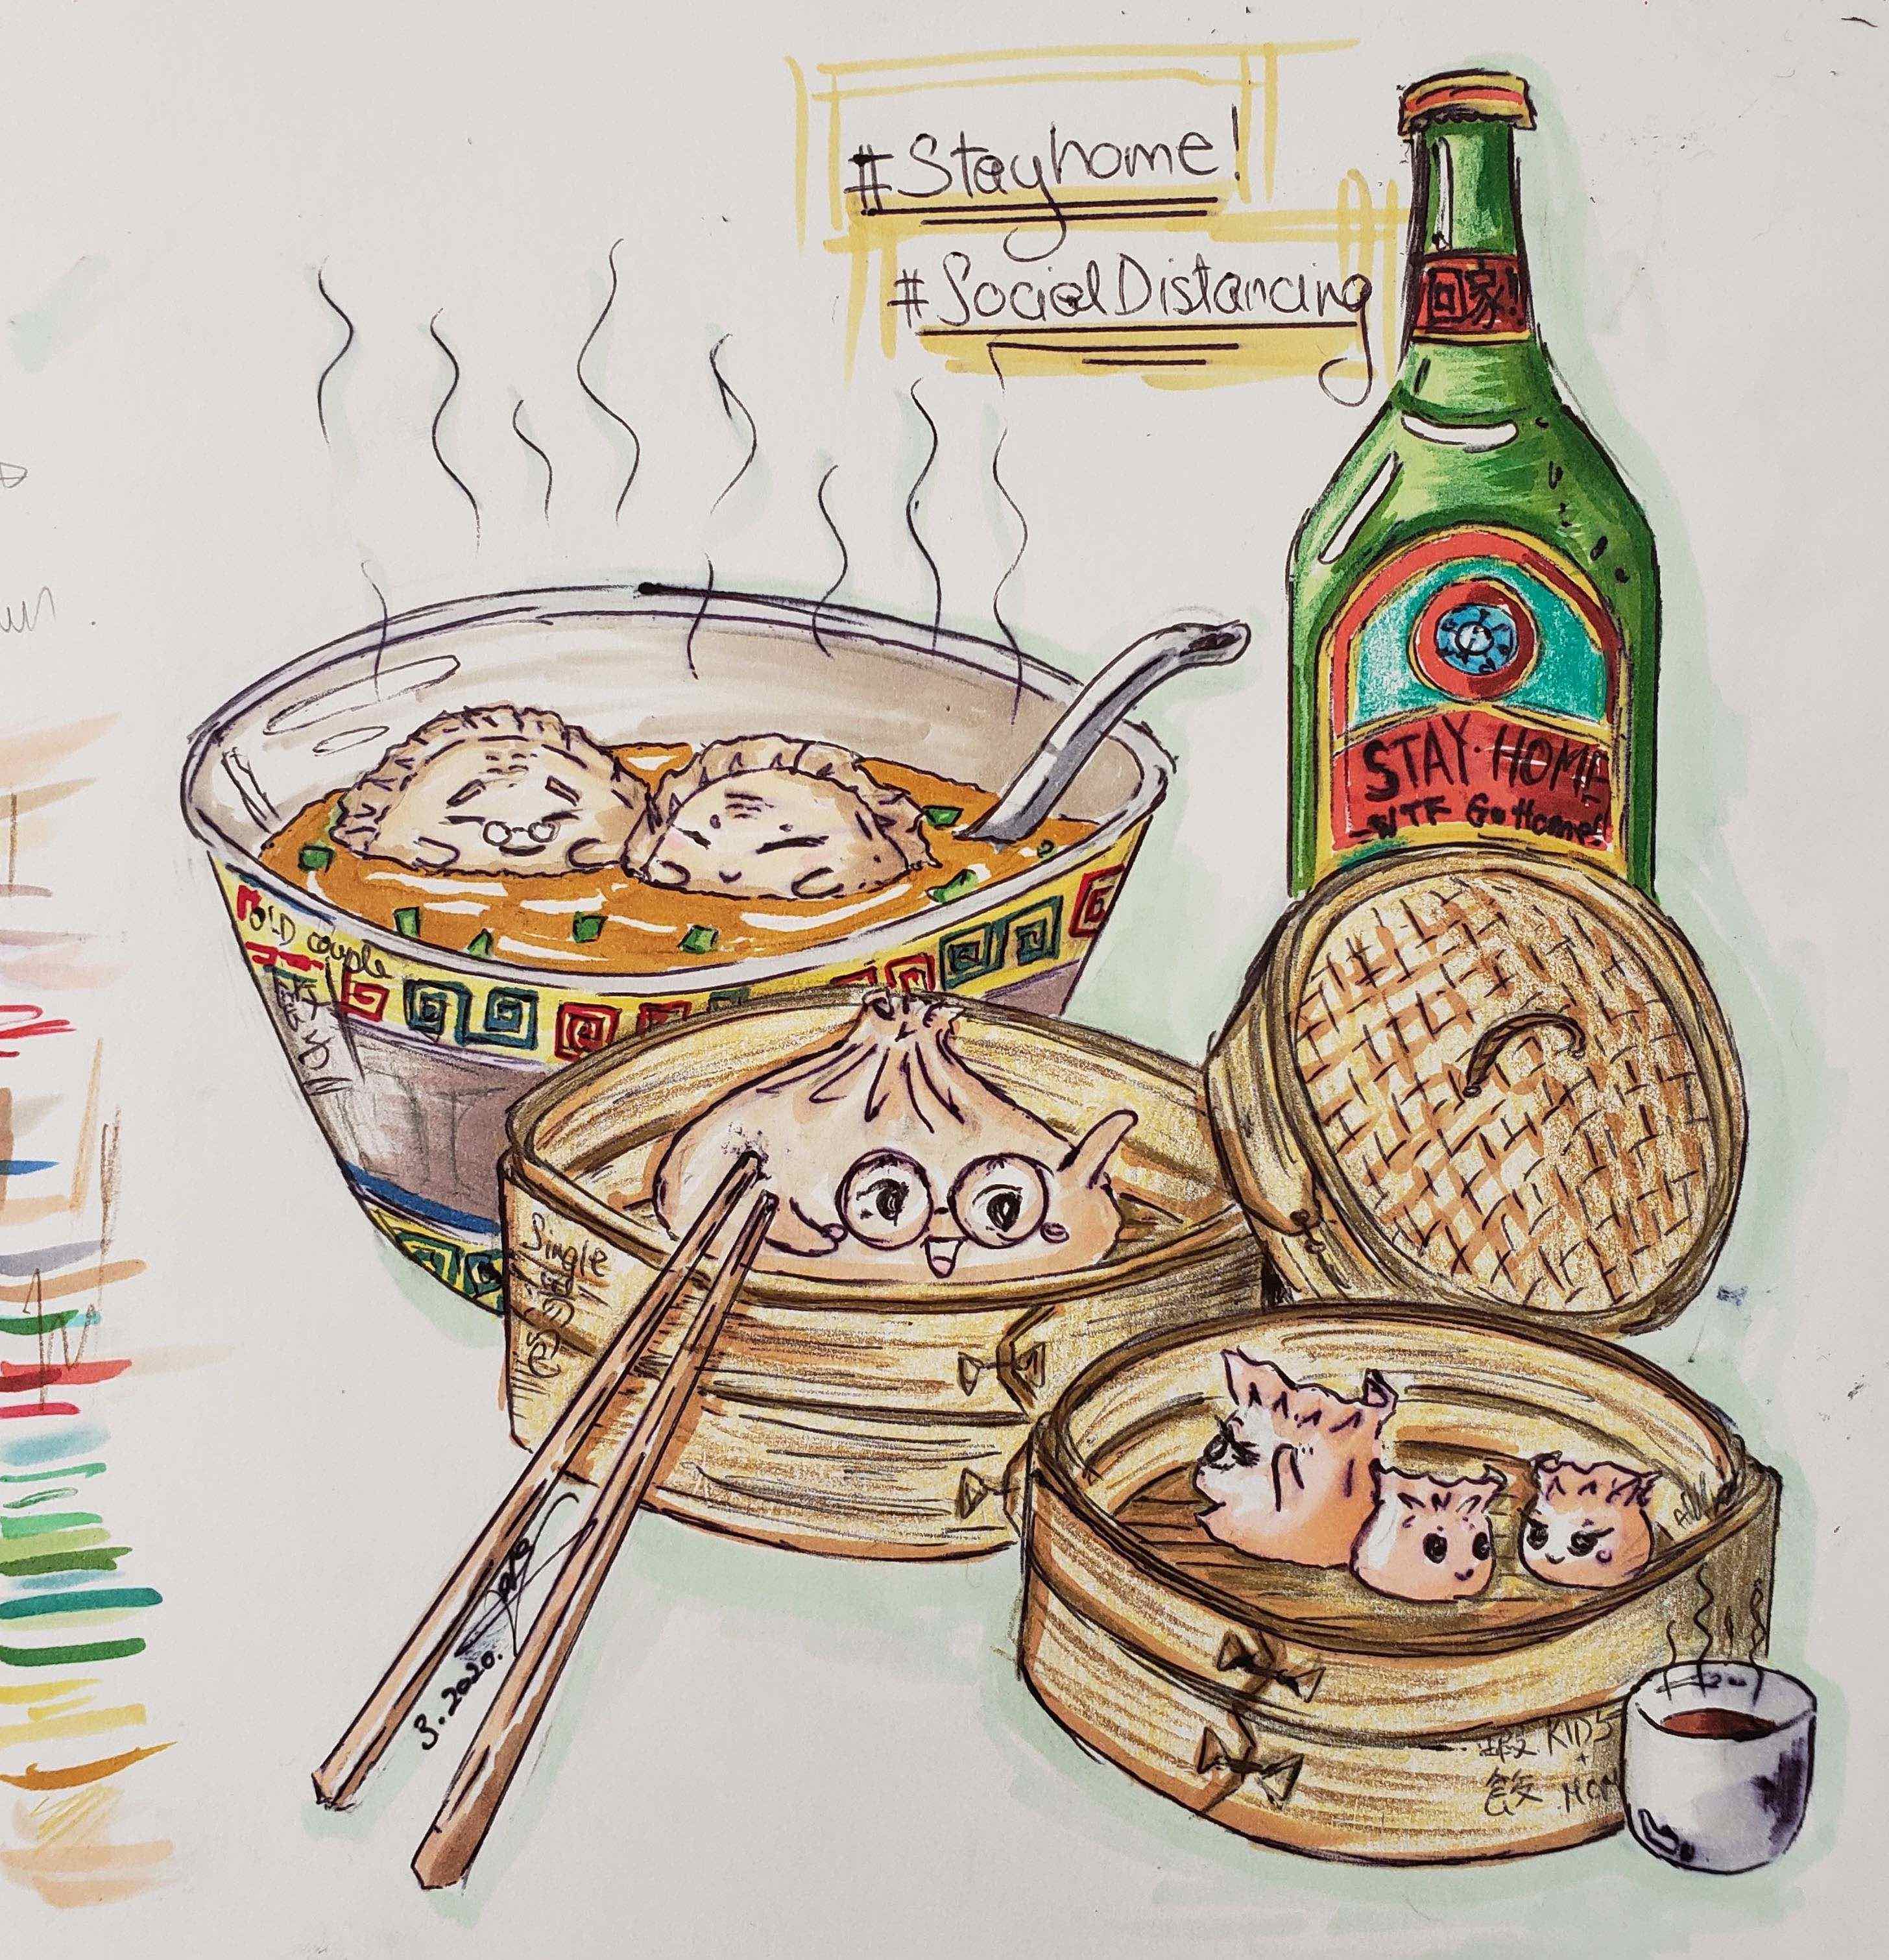 #Stayhome!
#Social Distancing
回家!
STAY HOME
WTF Go Home!
OLD couple
Single
3.2020.
蝦 KIDS
+
餃 MOM